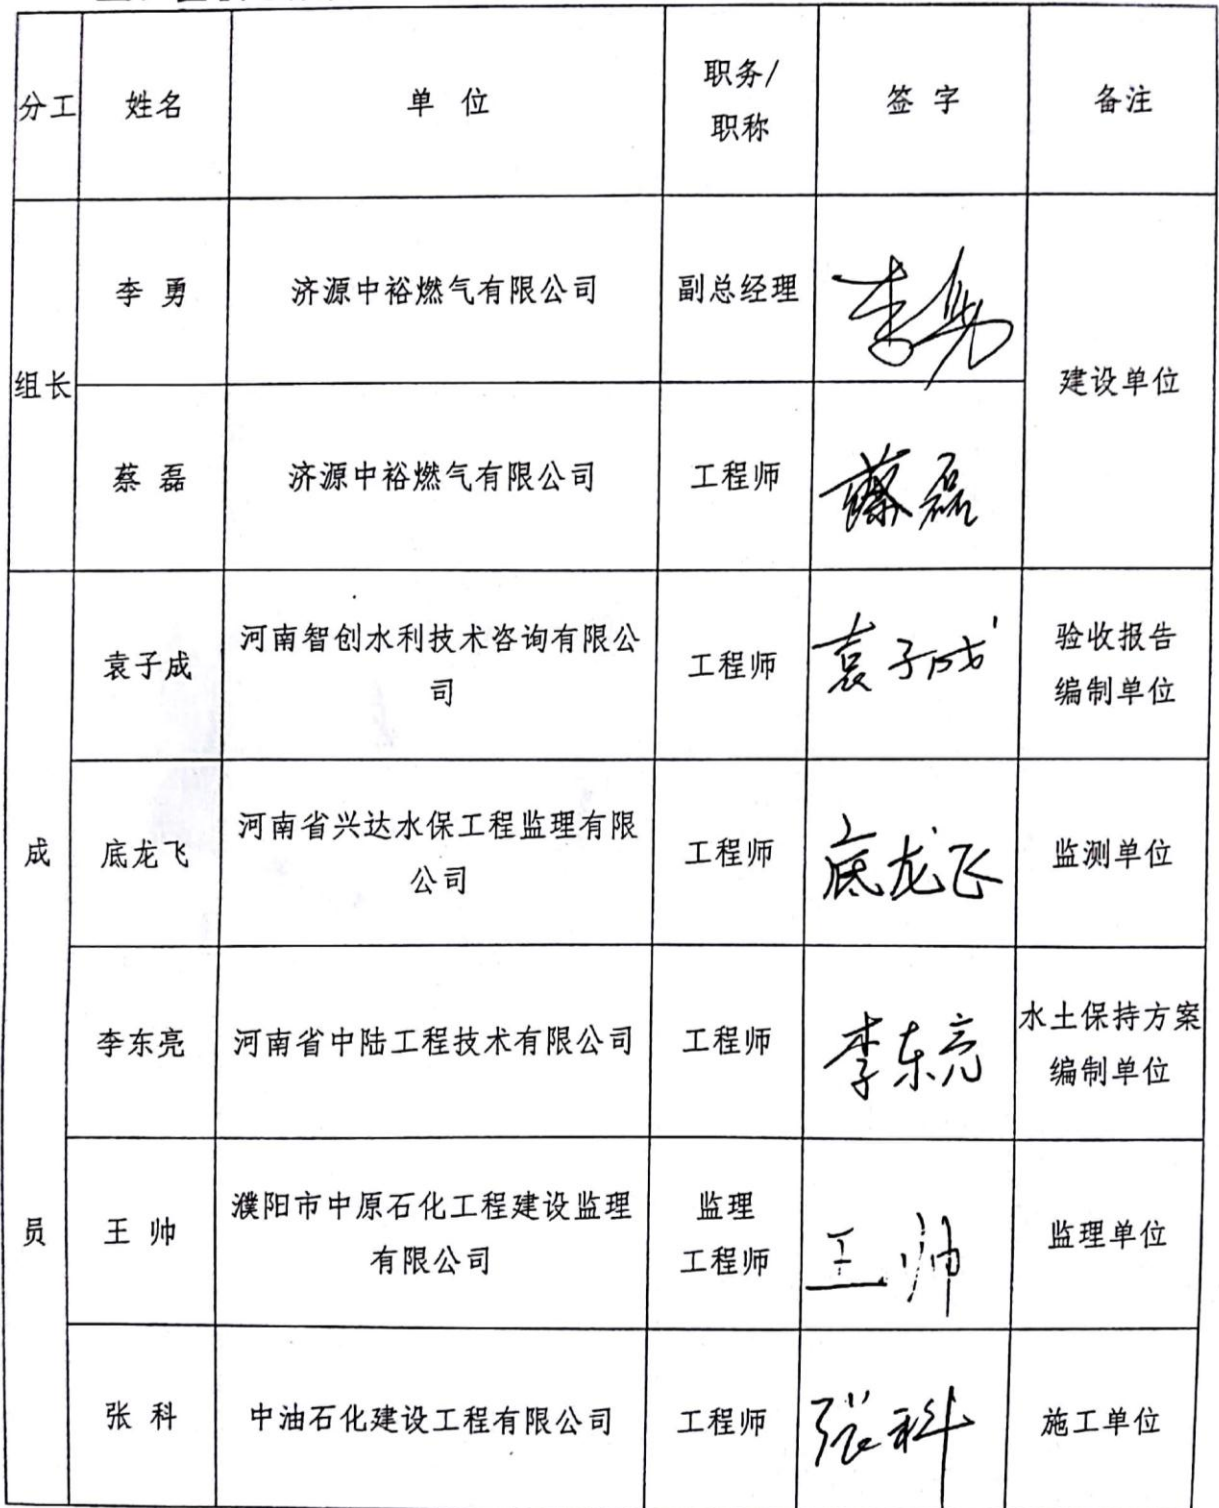 分工 姓名 单 位 职务/ 签 字 备注
职称
组长
李 勇 济源中裕燃气有限公司 副总经理 李勇
建设单位
蔡 磊 济源中裕燃气有限公司 工程师 蔡磊
成
员
袁子成 河南智创水利技术咨询有限公 工程师 袁子成 验收报告
司 编制单位
底龙飞 河南省兴达水保工程监理有限 工程师 底龙飞 监测单位
公司
李东亮 河南省中陆工程技术有限公司 工程师 李东亮 水土保持方案
编制单位
王 帅 濮阳市中原石化工程建设监理 监理 王帅 监理单位
有限公司 工程师
张 科 中油石化建设工程有限公司 工程师 张科 施工单位